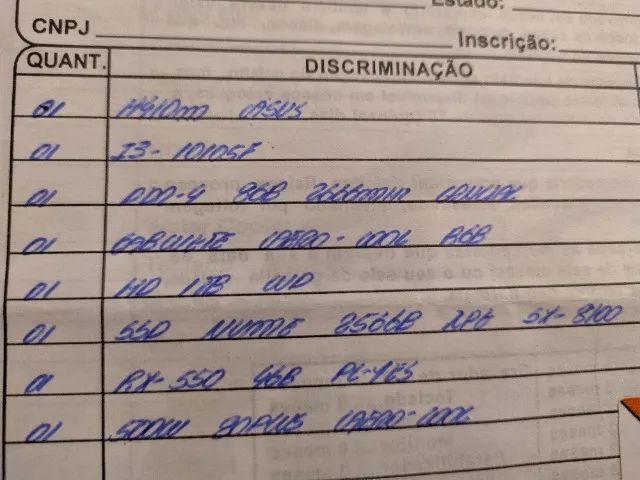 Estado:
CNPJ Inscrição:
QUANT. DISCRIMINAÇÃO
01 H410M ASUS
01 I3-10105F
01 DDR-4 8GB 2666MHZ CRUCIAL
01 GABINETE AERO-COOL RGB
01 HD 1TB WD
01 SSD NVME 256GB XPG SX-8100
01 RX-550 4GB PC-YES
01 500W 80PLUS AERO-COOL